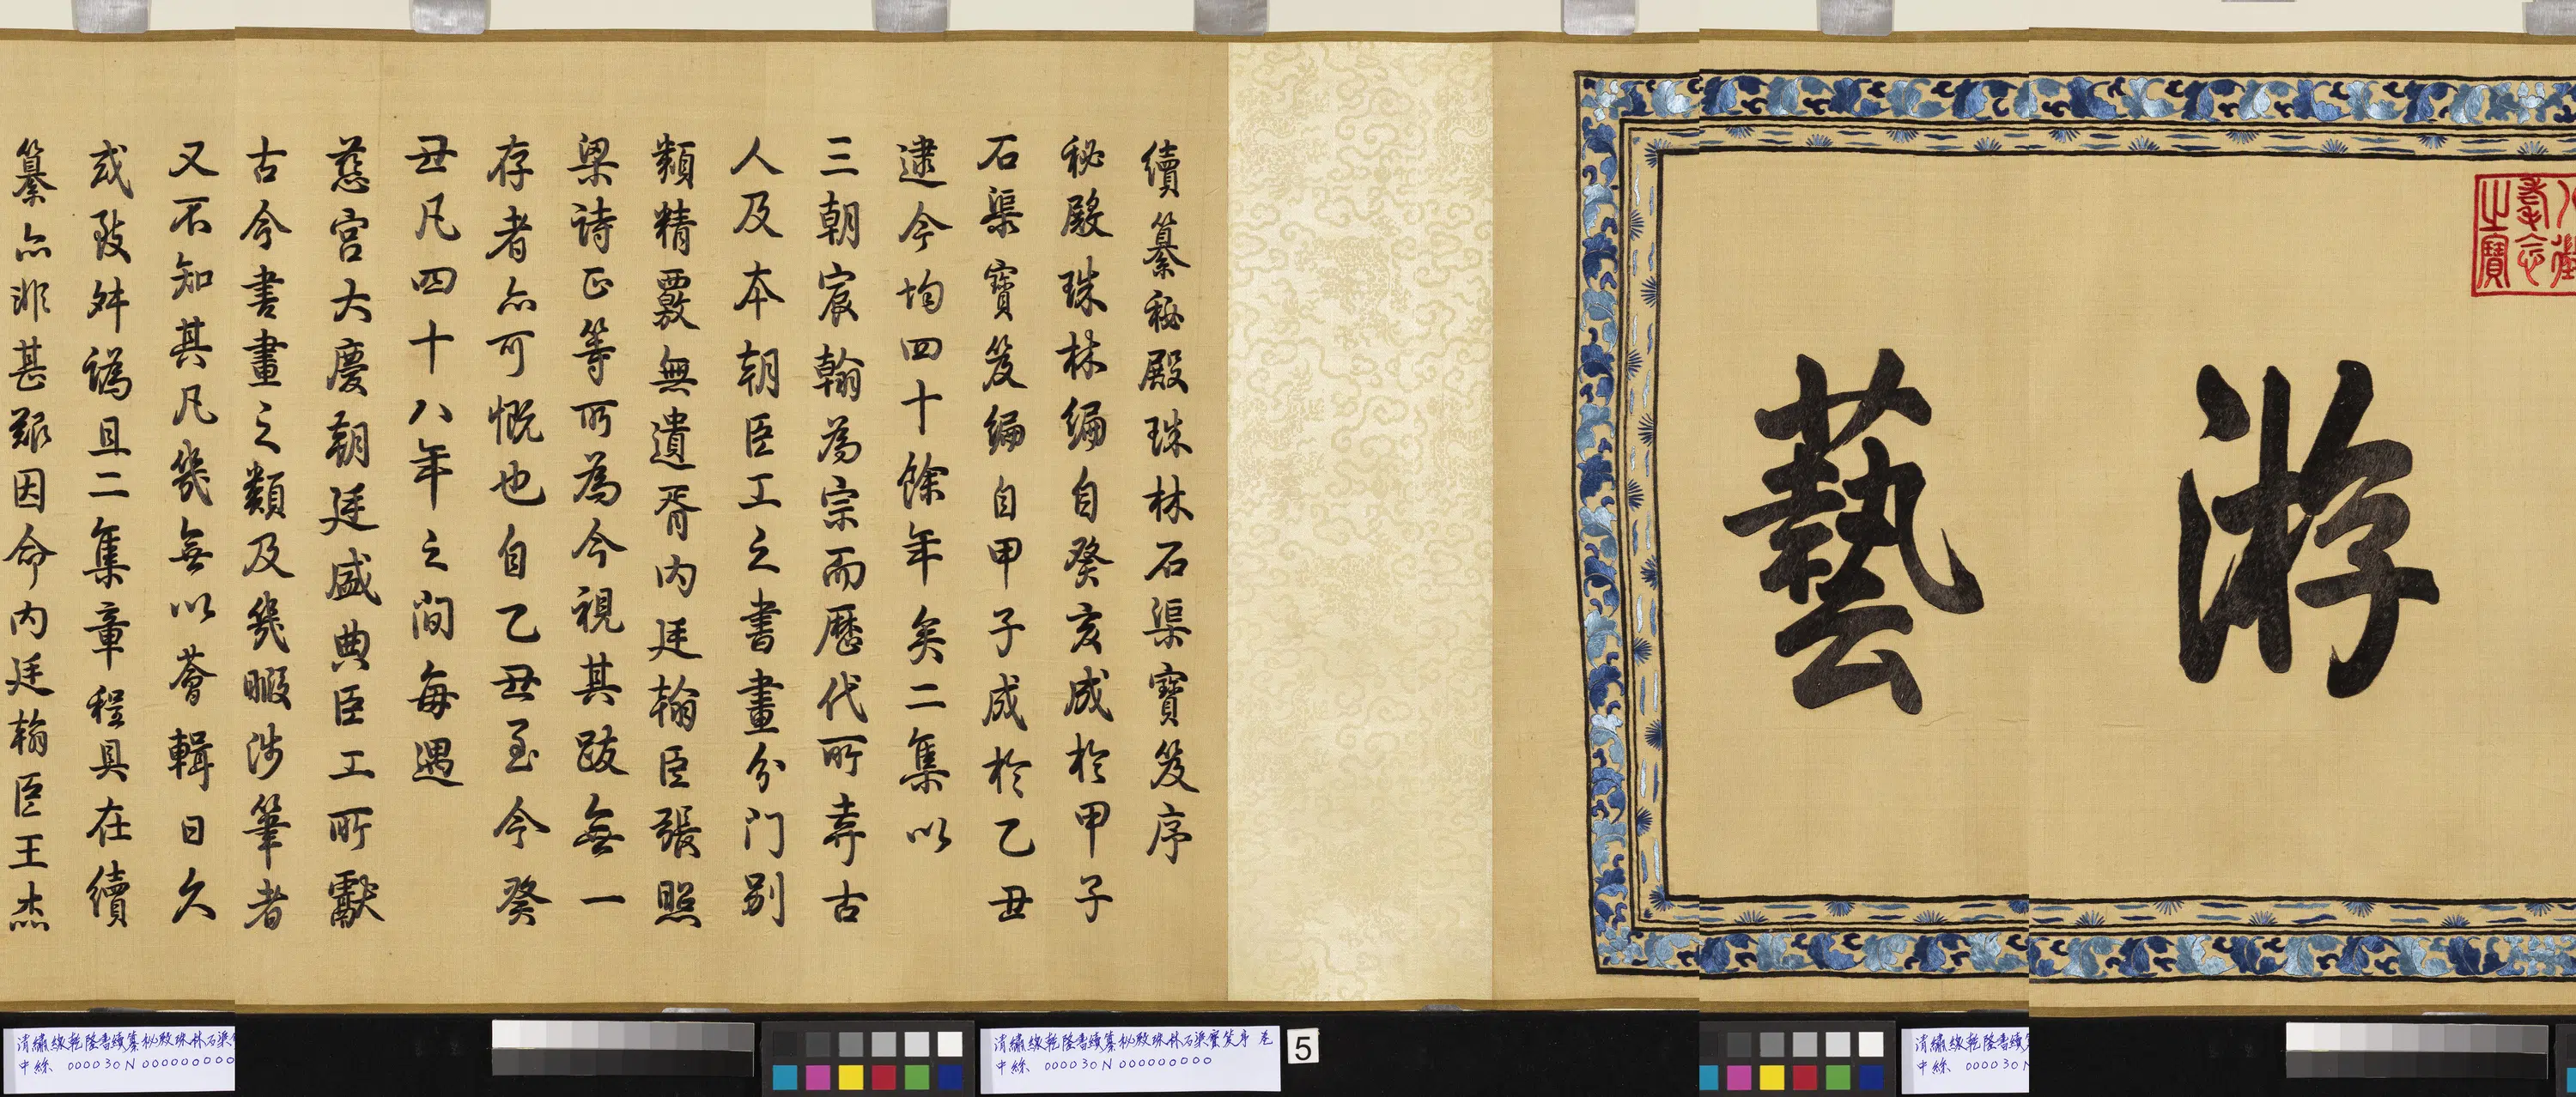 游藝
八徵耄念之寶
續纂秘殿珠林石渠寶笈序
秘殿珠林編自癸亥成於甲子
石渠寶笈編自甲子成於乙丑
逮今均四十餘年矣二集以
三朝宸翰為宗而歷代所弆古
人及本朝臣工之書畫分門別
類精覈無遺胥內廷翰臣張照
梁詩正等所為今視其跋無一
存者亦可慨也自乙丑至今癸
丑凡四十八年之間每遇
慈宮大慶朝廷盛典臣工所獻
古今書畫之類及幾暇涉筆者
又不知其凡幾無以薈輯日久
或致舛譌且二集章程具在續
纂亦非甚難因命內廷翰臣王杰
清繡線乾隆書續纂秘殿珠林石渠
中絲 000030N000000000
清繡線乾隆書續纂秘殿珠林石渠寶笈序 卷
中絲 000030N000000000
5
清繡線乾隆書續
中絲 000030N